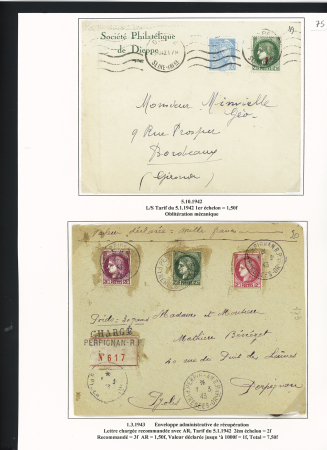 75
Société Philatélique
de Dieppe
Monsieur Minvielle
Géo
9 Rue Prosper
Bordeaux
(Gironde)
5.10.1942
L/S Tarif du 5.1.1942 1er échelon = 1,50f
Oblitération mécanique
Valeur déclarée = mille francs
CHARGÉ
PERPIGNAN-R.P.
N° 617
Madame et Monsieur
Mathieu
40 rue du Puit des
Perpignan
1.3.1943 Enveloppe administrative de récupération
Lettre chargée recommandée avec AR, Tarif du 5.1.1942 2ème échelon = 2f
Recommandé = 3f AR = 1,50f, Valeur déclarée jusqu 'à 1000f = 1f, Total = 7,50f